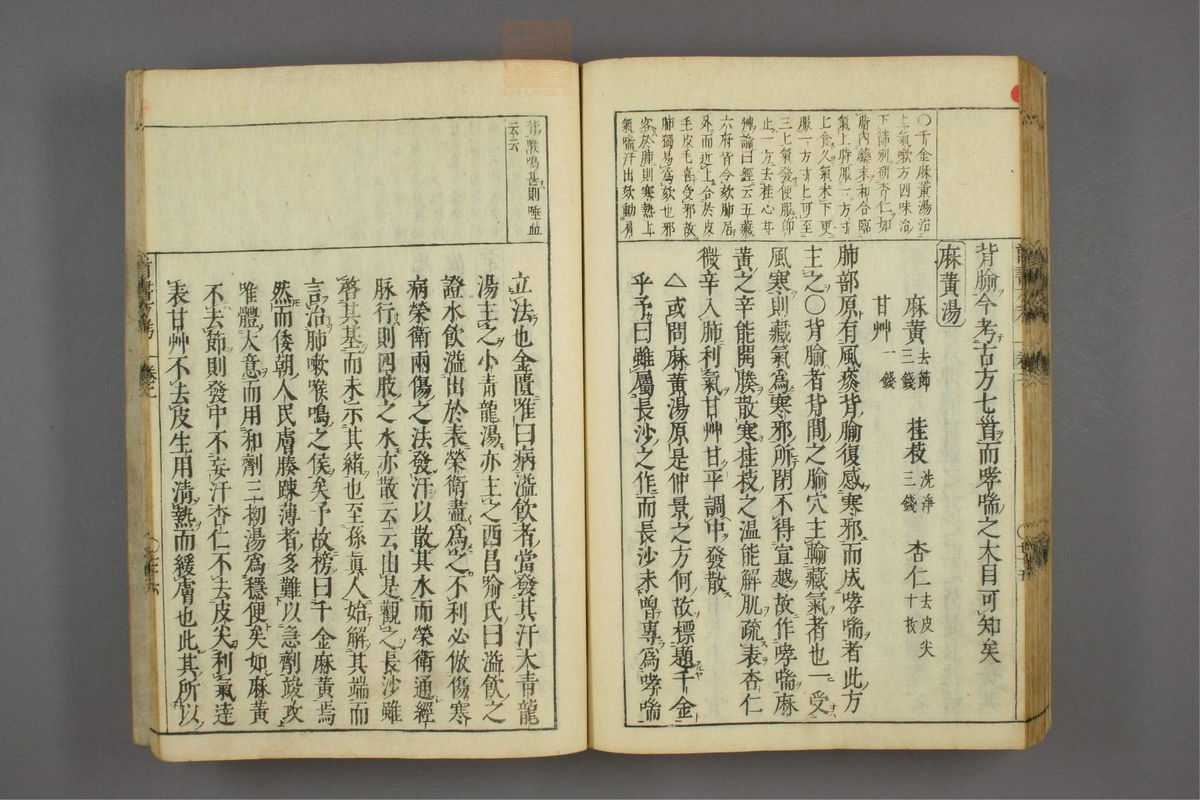 〇千金麻黃湯治
上氣嗽方四味治
下篩別研杏仁如
脂內藥末和合臨
氣上時服一方寸
匕食久氣未下更
服一方寸匕可至
三匕氣發便服卽
止一方去桂心甘
艸論曰經云五藏
六府皆令欬肺居
外而近上合於皮
毛皮毛喜受邪故
肺獨易爲欬也邪
客於肺則寒熱上
氣喘汗出欬動肩
背腧今考古方七首而哮喘之大目可知矣
麻黃湯
麻黃去節三錢 桂枝洗淨三錢 杏仁去皮尖十枚
甘艸一錢
肺部原有風痰背腧復感寒邪而成哮喘者此方
主之〇背腧者背間之腧穴主輸藏氣者也一受
風寒則藏氣爲寒邪所閉不得宣越故作哮喘麻
黃之辛能開腠散寒桂枝之溫能解肌疏表杏仁
微辛入肺利氣甘艸甘平調中發散
△或問麻黃湯原是仲景之方何故標題千金
乎予曰雖屬長沙之作而長沙未曾專爲哮喘
背喉鳴甚則唾血
云云
立法也金匱唯曰病溢飲者當發其汗大青龍
湯主之小青龍湯亦主之西昌喻氏曰溢飲之
證水飲溢出於表榮衛盡爲之不利必倣傷寒
病榮衛兩傷之法發汗以散其水而榮衛通經
脉行則四肢之水亦散云云由是觀之長沙雖
啓其基而未示其緒也至孫眞人始解其端而
言治肺嗽喉鳴之候矣予故榜曰千金麻黃焉
然而倭朝人民膚腠踈薄者多難以急劑竣攻
唯體大意而用和劑三拗湯爲穩便矣如麻黃
不去節則發中不妄汗杏仁不去皮尖利氣達
表甘艸不去皮生用淸熱而緩膚也此其所以